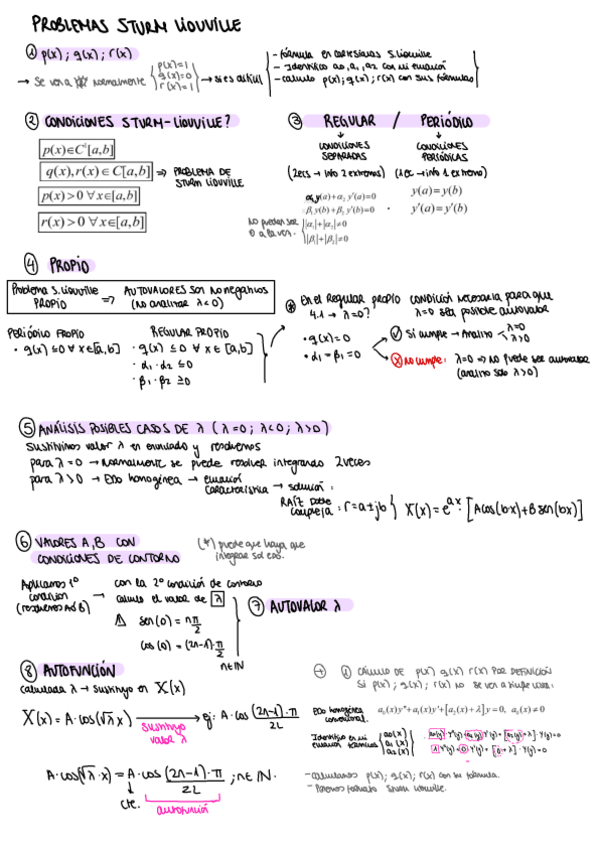 PROBLEMAS STURM LIOUVILLE
① p(x) ; q(x) ; r(x)
→ Se ven a normalmente { p(x)=1 q(x)=0 r(x)=1 → si es difícil
- fórmula en cartesianas S. Liouville
- Identifico a0, a1, a2 con mi ecuación
- calculo p(x); q(x); r(x) con sus fórmulas
② CONDICIONES STURM-LIOUVILLE?
p(x)∈C¹[a,b]
q(x),r(x)∈C[a,b] ⇒ PROBLEMA DE STURM LIOUVILLE
p(x)>0 ∀x∈[a,b]
r(x)>0 ∀x∈[a,b]
③ REGULAR / PERIÓDICO
CONDICIONES SEPARADAS
(2ecs → info 2 extremos)
α₁y(a)+α₂ y'(a)=0
β₁y(b)+β₂ y'(b)=0
No pueden ser 0 a la vez.
|α₁|+|α₂|≠0
|β₁|+|β₂|≠0
CONDICIONES PERIÓDICAS
(1ec → info 1 extremo)
y(a)=y(b)
y'(a)=y'(b)
④ PROPIO
Problema S. Liouville PROPIO ⇒ AUTOVALORES son no negativos (no analizar λ<0)
PERIÓDICO PROPIO
• q(x) ≤0 ∀ x∈[a,b]
REGULAR PROPIO
• q(x) ≤0 ∀ x∈[a,b]
• α₁·α₂ ≤0
• β₁·β₂ ≥0
⊛ En el Regular propio condición necesaria para que
4.1 → λ=0? λ=0 sea posible autovalor
• q(x)=0
• α₁=β₁=0
✓ Si cumple → Analizo λ=0 λ>0
✗ no cumple: λ=0 ⇒ no puede ser autovalor
(analizo solo λ>0)
⑤ ANÁLISIS POSIBLES CASOS DE λ (λ=0; λ<0; λ>0)
Sustituimos valor λ en enunciado y resolvemos
para λ=0 → Normalmente se puede resolver integrando 2 veces
para λ>0 → EDO homogénea → ecuación característica → solución:
RAÍZ doble compleja: r=a±jb } X(x)=e^{ax}·[Acos(bx)+Bsen(bx)]
⑥ VALORES A,B CON CONDICIONES DE CONTORNO
(*) puede que haya que integrar sol edo.
Aplicamos 1º condición (resolvemos A o B) → con la 2º condición de contorno calculo el valor de λ
⚠ sen(0) = nπ/2
cos(0) = (2n-1)·π/2
n∈N
⑦ AUTOVALOR λ
⑧ AUTOFUNCIÓN
calculada λ → sustituyo en X(x)
X(x) = A·cos(√λ x) → ej: A·cos (2n-1)·π/2L
sustituyo valor λ
A·cos(√λ·x) = A·cos (2n-1)·π/2L ; n∈N.
cte.
autofunción
→ ① CÁLCULO DE p(x) q(x) r(x) POR DEFINICIÓN
Si p(x); q(x); r(x) no se ven a simple vista:
EDO homogénea convencional. a₀(x)y''+a₁(x)y'+[a₂(x)+λ]y=0, a₀(x)≠0
Identifico en mi ecuación términos { a0(x) a1(x) a2(x)
a0(y)·Y''(y)+a1(y)·Y'(y)+[a2(y)+λ]·Y(y)=0
1·Y''(y)+0·Y'(y)+[0+λ]·Y(y)=0
- calculamos p(x); q(x); r(x) con su fórmula.
- Ponemos formato Sturm Liouville.